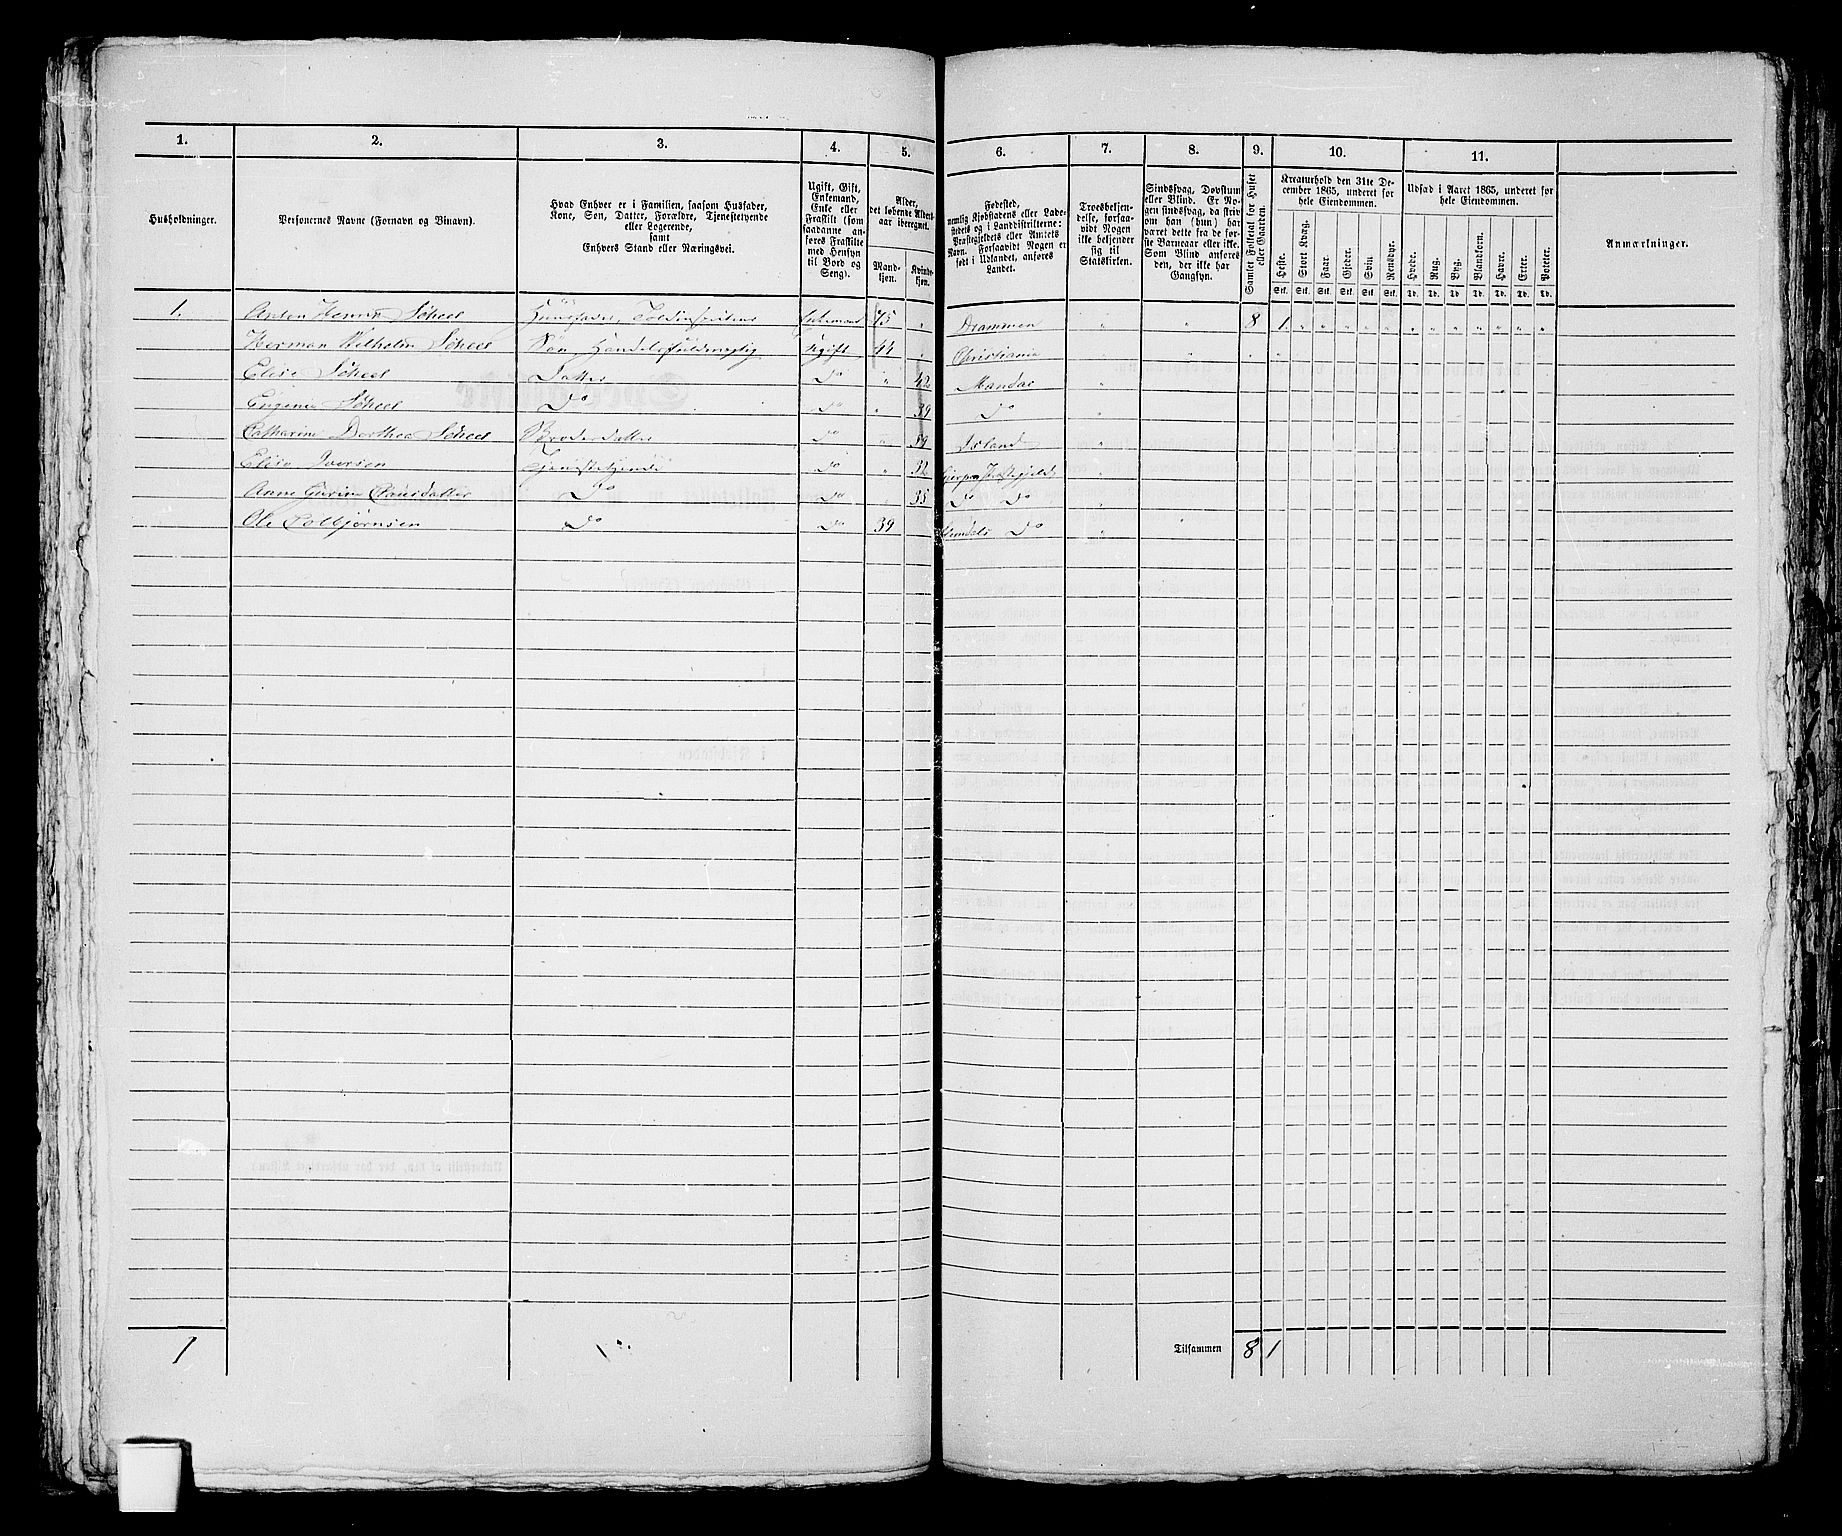 1. 2. 3. 4. 5. 6. 7. 8. 9. 10. 11.
Husholdninger.
Personernes Navne (Fornavn og Binavn).
Hvad Enhver er i Familien, saasom Husfader,
Kone, Søn, Datter, Forældre, Tjenestetyende
eller Logerende,
samt
Enhvers Stand eller Næringsvei.
Ugift, Gift,
Enkemand,
Enke eller
Fraskilt (som
saadanne an-
føres Fraskilte
med Hensyn
til Bord og
Seng).
Alder,
det løbende Alders-
aar iberegnet.
Mand-
kjøn.
Kvinde-
kjøn.
Fødested,
nemlig Kjøbstadens eller Lade-
stedets og i Landdistrikterne:
Præstegjeldets eller Amtets
Navn. Forsaavidt Nogen er
født i Udlandet, anføres
Landet.
Troesbekjen-
delse, forsaa-
vidt Nogen
ikke bekjender
sig til
Statskirken.
Sindssvag, Døvstum
eller Blind. Er No-
gen sindssvag, da skriv
om han (hun) har
været dette fra de før-
ste Barneaar eller ikke.
Som Blind anføres
den, der ikke har
Gangsyn.
Samlet Folketal for Huset
eller Gaarden.
Kreaturhold den 31te De-
cember 1865, underet for
hele Eiendommen.
Heste. Stort Kvæg. Faar. Gjeder. Svin. Rensdyr.
Stk. Stk. Stk. Stk. Stk. Stk.
Udsæd i Aaret 1865, underet for
hele Eiendommen.
Hvede. Rug. Byg. Blandkorn. Havre. Erter. Poteter.
Td. Td. Td. Td. Td. Td. Td.
Anmærkninger.
1. Anton Henrik Scheel Huusfader, Enkemand 75 " Drammen " " 8 1. " " " " " " " " " " " "
Herman Wilhelm Scheel Søn Handelsfuldmægtig Ugift 44 " Christiania " " "
Elise Scheel Datter Do " 42 Mandal "
Eugenie Scheel Do Do " 39 Do "
Catharine Dorthea Scheel Broderdatter Do " 59 Island "
Elise Iversen Tjenestetyende Do " 32 Gjerpen Præstegjeld "
Anne Gurine Clausdatter Do Do " 35 Do Do "
Ole Colbjørnsen Do Do 39 Do "
1
Tilsammen 8 1